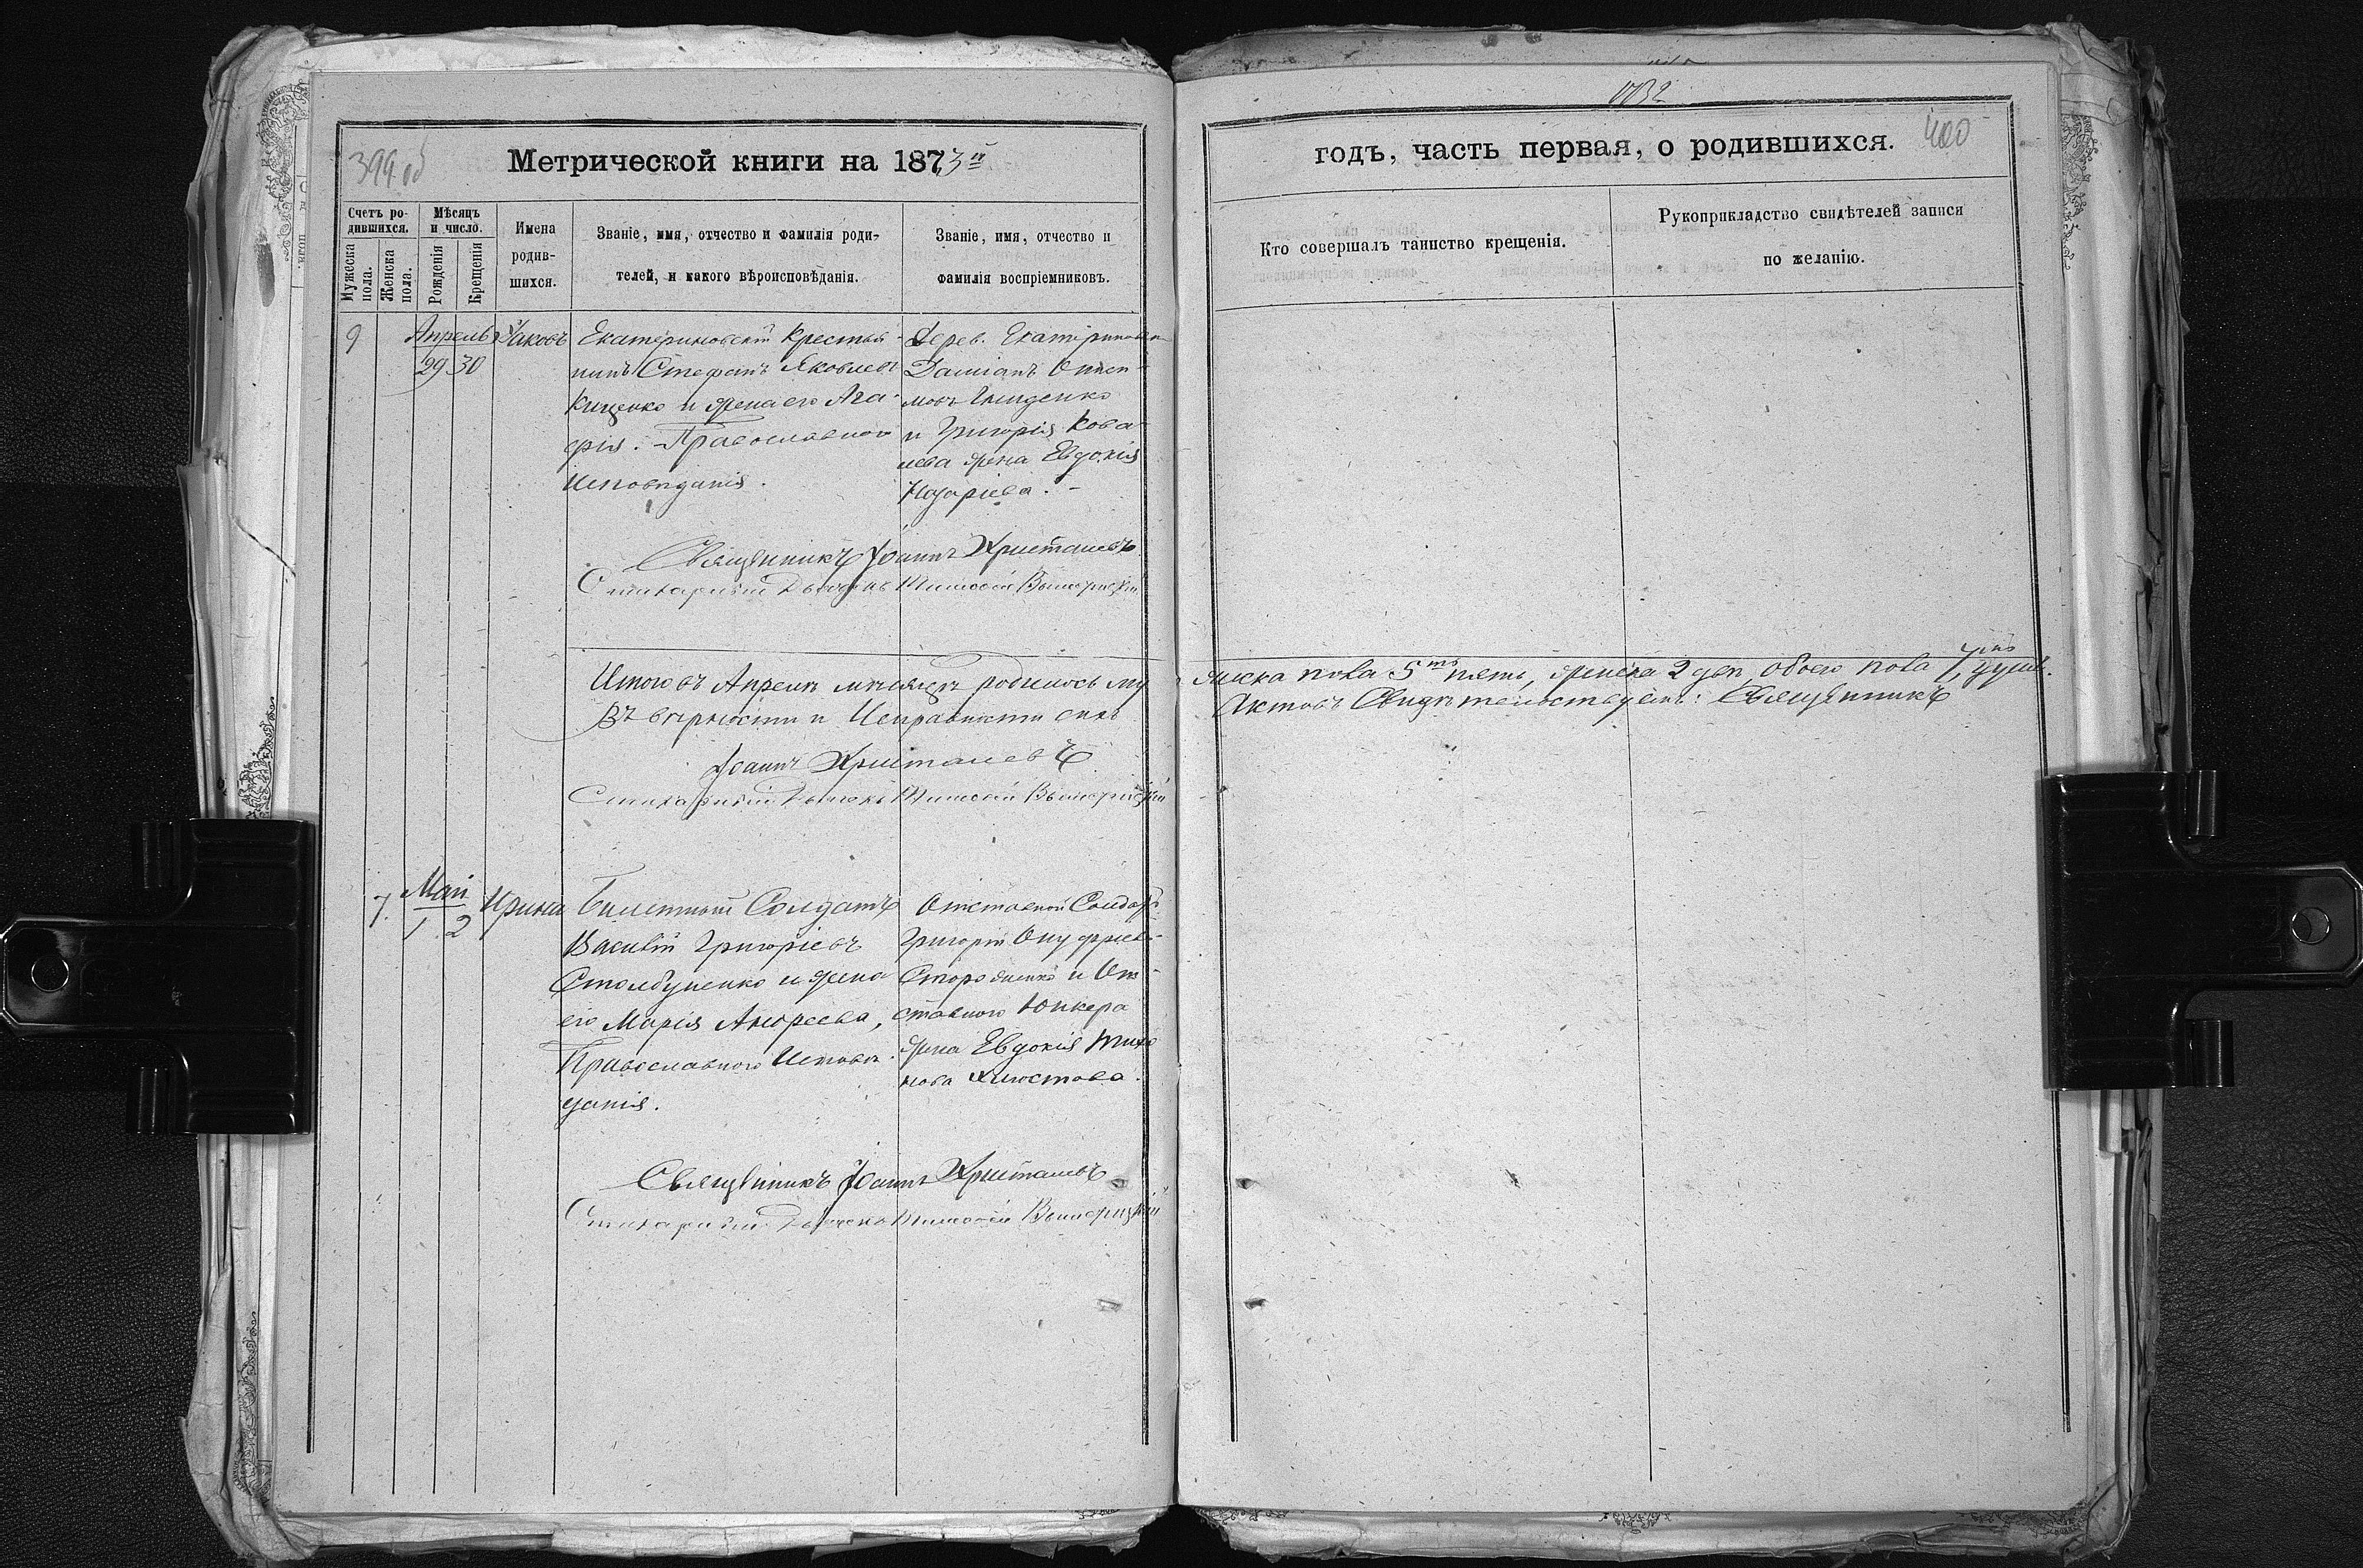 1032
399 об
Метрической книги на 1873й
годъ, часть первая, о родившихся.
400
Счетъ родившихся.
Мужеска пола.
Женска пола.
Мѣсяцъ и число.
Рожденія
Крещенія
Имена
родив-
шихся.
Званіе, имя, отчество и фамилія роди-
телей, и какого вѣроисповѣданія.
Званіе, имя, отчество и
фамилія воспріемниковъ.
Кто совершалъ таинство крещенія.
Рукоприкладство свидѣтелей записи
по желанію.
9
Апрель
29 30
Іаковъ
Екатериновскій Крестья-
нинъ Стефанъ Яковлевъ
Кищенко и жена его Ага-
фія. Православного
Исповѣданія.
Дерев. Екатериновки
Даміанъ
и Григорія Кова-
лева жена Евдокія
Назаріева.
Священникъ Іоаннъ Христалевъ
Стихарный Дьячекъ Тимофей
Итого въ Апрелѣ мѣсяцѣ родилось му
жеска пола 5ть пять, женска 2 две, обоего пола 7мь душъ.
Въ верности и Исправности сихъ
Актовъ Свидѣтельствуемъ: Священникъ
Іоаннъ Христалевъ
Стихарный Дьячекъ Тимофей
7.
Май
1 2
Ирина
Билетный Солдатъ
Василій Григоріевъ
Столбуненко и жена
его Марія Андреева,
Православного Исповѣ-
данія.
Отставной Солдатъ
Григорій Онуфріевъ
Стороженко и От-
ставного Юнкера
жена Евдокія Тихо
нова Хлюстова.
Священникъ Іоаннъ Христалевъ
Стихарный Дьячекъ Тимофей